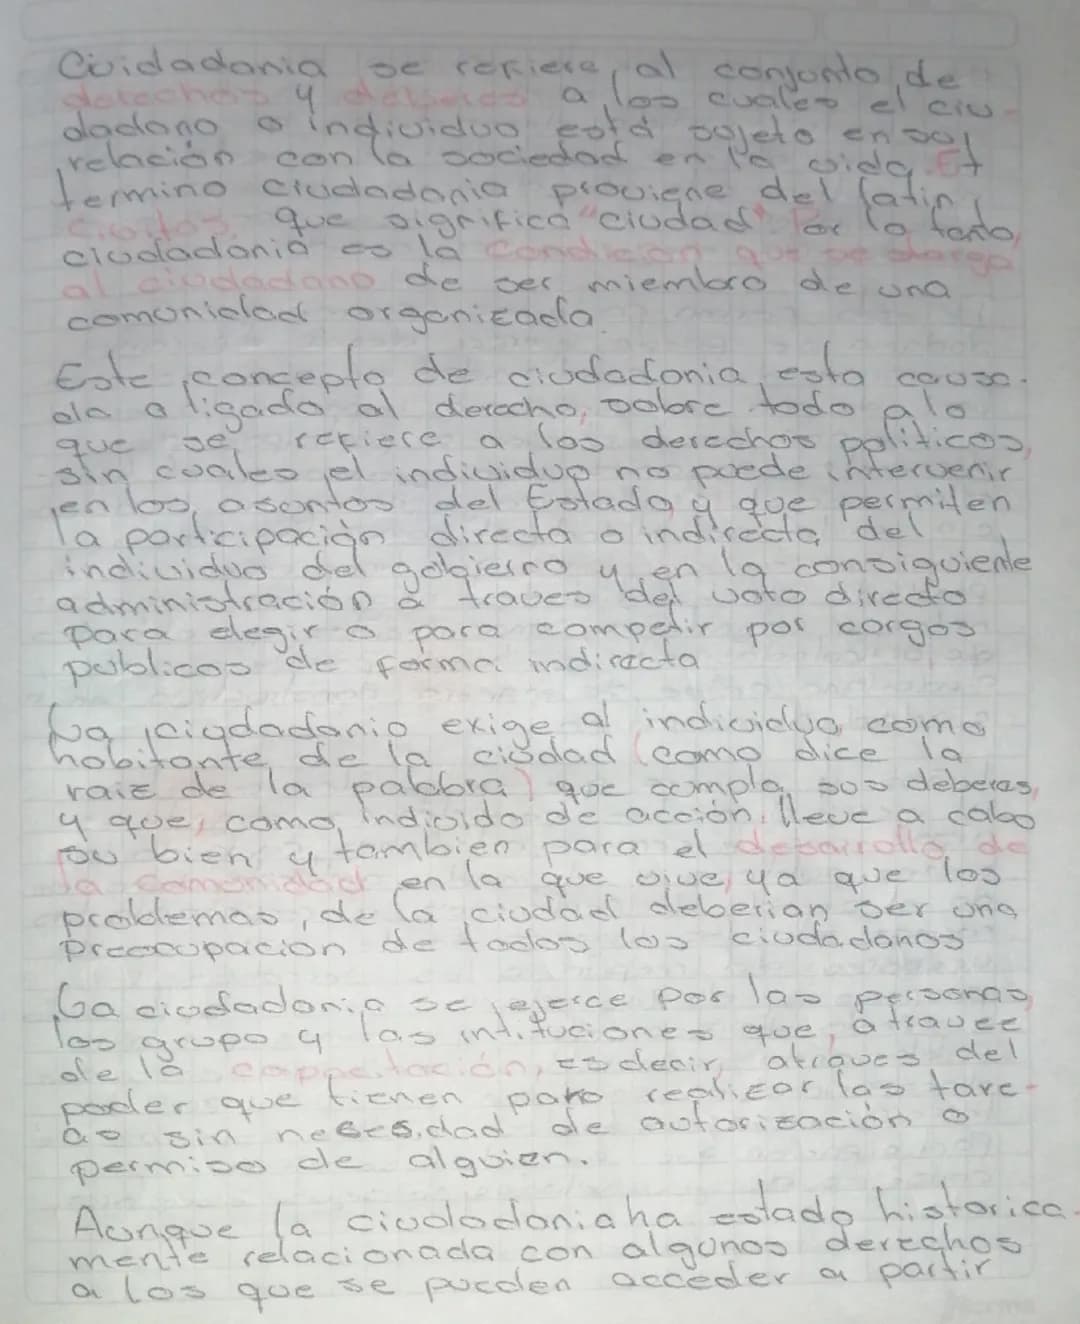 Cuidadania se refiere, al conjunto de
derechos y deberes a los cuales el ciu-
dadano o individuo está sujeto en su
relación con la sociedad en la vida. El
termino ciudadania proviene del latin
civitas, que significa "ciudad" Por lo tanto,
ciudadania es la condicion que se otorga
al ciudadano de ser miembro de una
comunidad organizada.
Este concepto de ciudadania esta
o ligado al derecho, sobre todo alo
que se refiere a los derechos politicos,
sin cuales el individuo no puede intervenir
en los asuntos del Estado, y que permiten
la participación directa o indirecta del
individuo del gobierno y en la consiguiente
administración a traves del voto directo
para elegir o para competir por cargos
publicos de forma indirecta
La ciudadania exige al individuo, como
habitante de la ciudad (como dice la
raiz de la palabra) que cumpla sus deberes,
y que, como individo de acción, lleve a cabo
su bien y tambien para el desarrollo de
la comunidad en la que vive, ya que los
problemas de la ciudad deberian ser una
preocupacion de todos los ciudadanos
La ciudadania se ejerce por las personas,
los grupo y las intituciones que, a travee
de la es decir, atraves del
poder que tienen para realizar las tare-
as sin necesidad de autorización o
permiso de alguien.
Aunque la ciudadania ha estado historica-
mente relacionada con algunos derechos
a los que se pueden acceder a partir